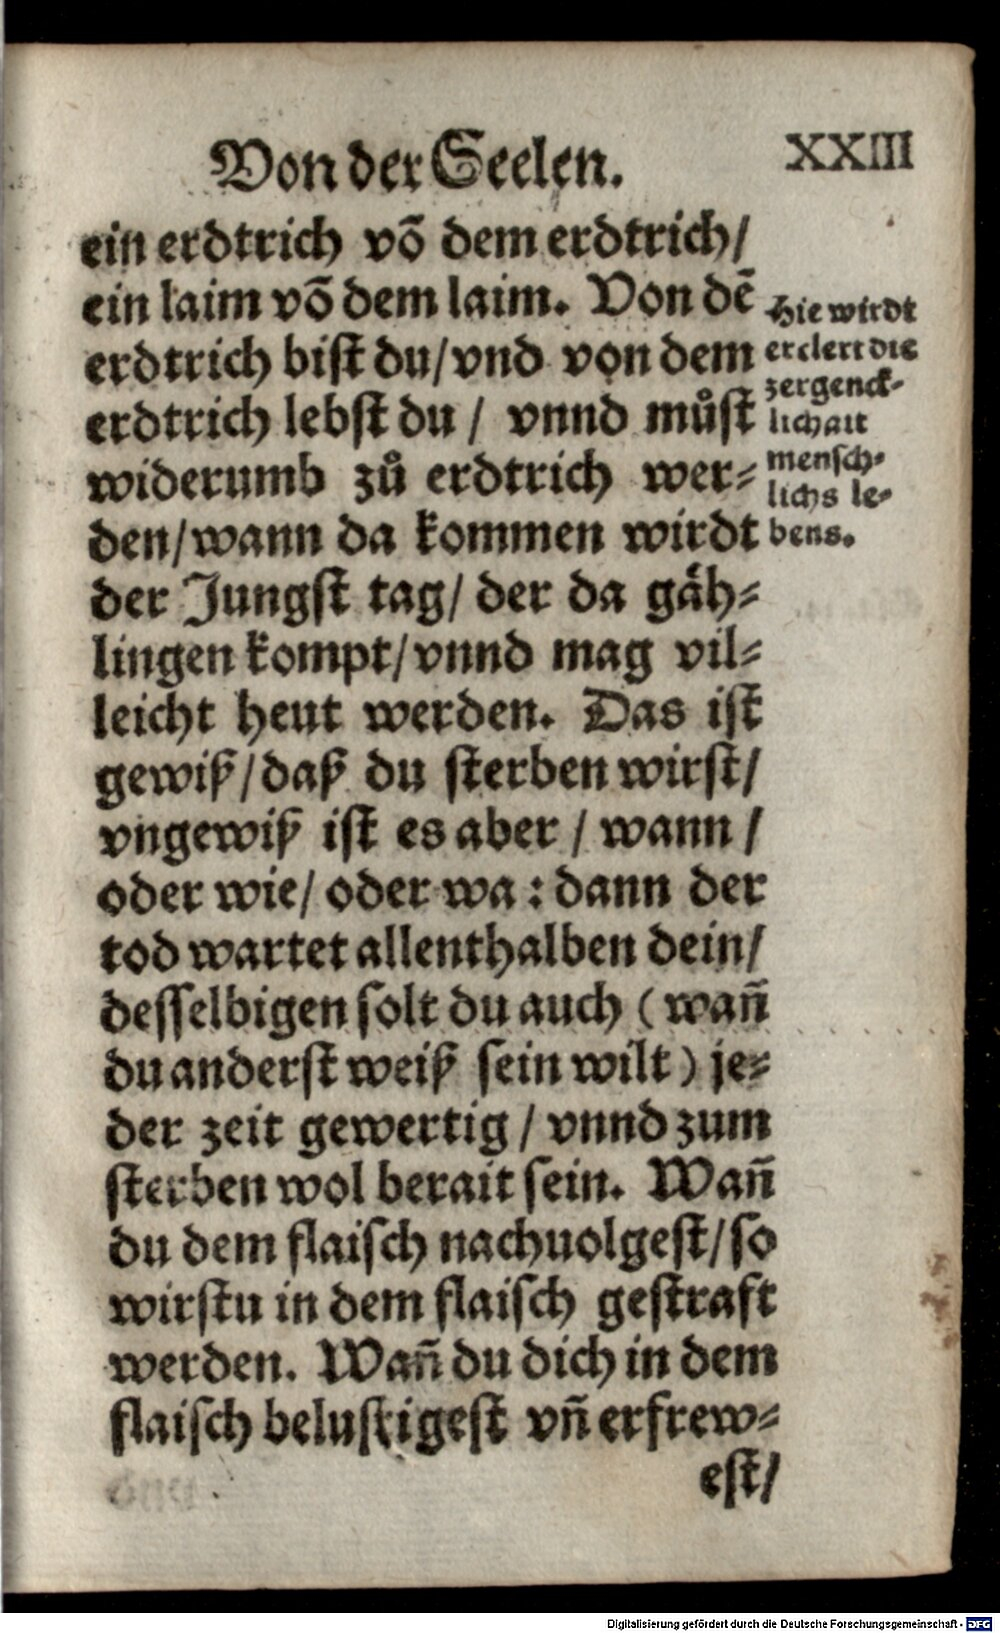 Von der Seelen.
XXIII
ein erdtrich võ dem erdtrich/
ein laim võ dem laim. Von dẽ
erdtrich bist du/vnd von dem
erdtrich lebst du / vnnd můst
widerumb zů erdtrich wer⸗
den/wann da kommen wirdt
der Jungst tag/ der da gäh⸗
lingen kompt/vnnd mag vil⸗
leicht heut werden. Das ist
gewiß/daß du sterben wirst/
vngewiß ist es aber / wann /
oder wie/ oder wa: dann der
tod wartet allenthalben dein/
desselbigen solt du auch (wañ
du anderst weiß sein wilt) je⸗
der zeit gewertig / vnnd zum
sterben wol berait sein. Wañ
du dem flaisch nachuolgest/so
wirstu in dem flaisch gestraft
werden. Wañ du dich in dem
flaisch belustigest vñ erfrew⸗
est/
Hie wirdt
erclert die
zergenck⸗
lichait
mensch⸗
lichs le⸗
bens.
Digitalisierung gefördert durch die Deutsche Forschungsgemeinschaft - DFG